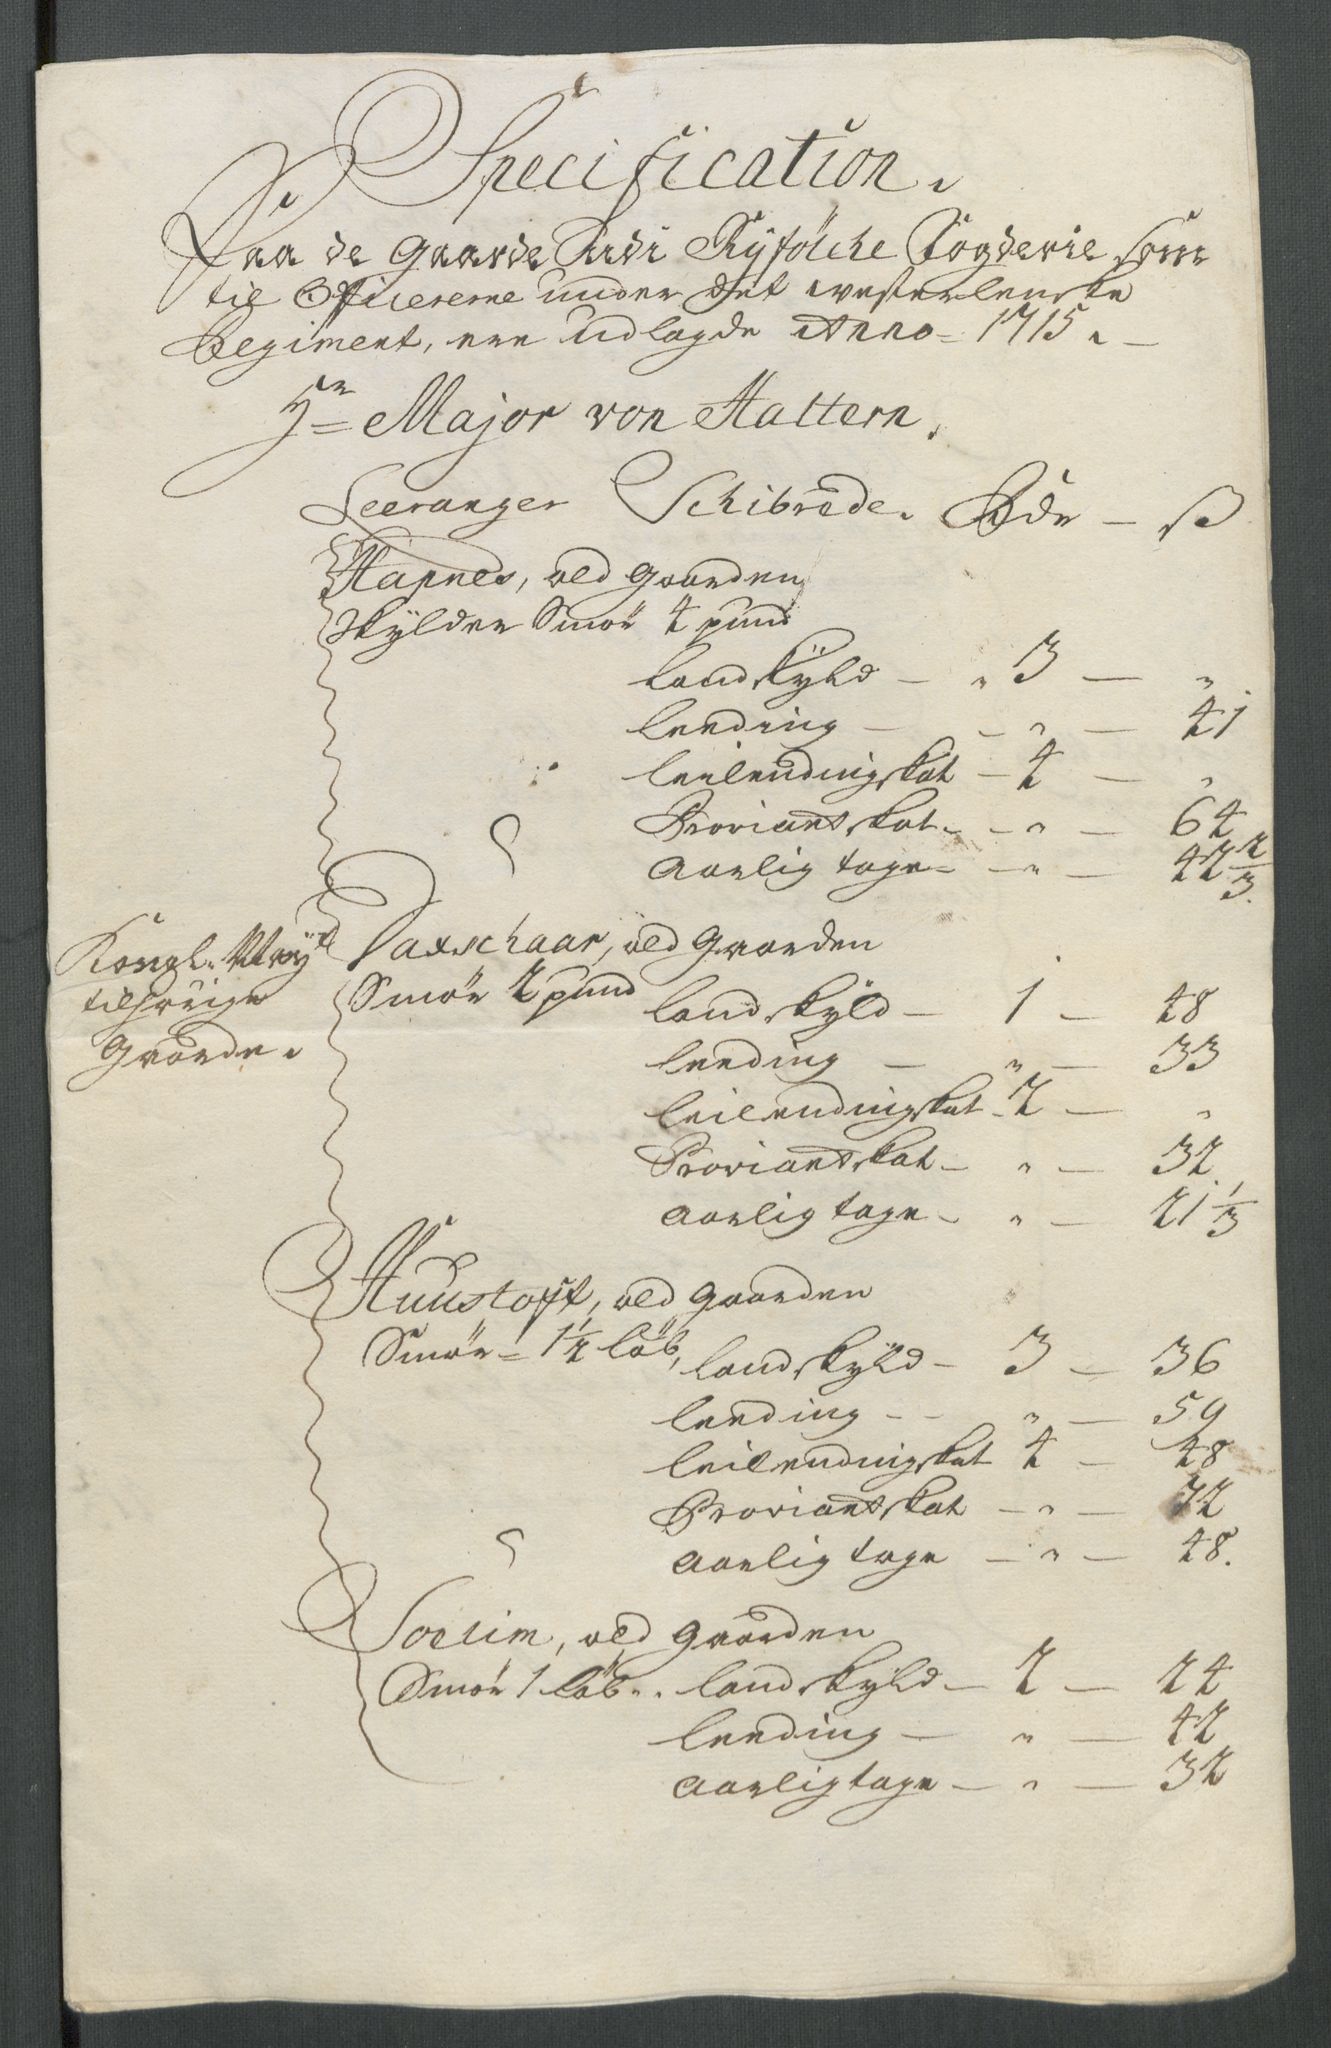 Specification.
Paa de Gaarde Udi Ryfölche Fogderie som
til Officererne under det westerlenske
Regiment, ere udlagde Anno= 1715.
Hr= Major von Hattern.
Leeranger Schibrede. Rdr — ß
Hapnes, ald gaarden
skylder Smör 4 pund
landskyld — „ 3 — „
leeding — — „ — 41
leilendingskat — 4 — „
Proviantskat — — „ — 64
aarlig tage — — „ — 42 2/3.
Kongl. Mayts
tilhörige
Gaarde.
Saxschaar, ald Gaarden
Smör 2 pund
landskyld — 1 — 48
leeding — „ — 33
leilendingskat — 2 — „
Proviantskat — „ — 32
aarlig tage — „ — 21 1/3
Huustoft, ald gaarden
Smör= 1 1/2 löb,
landskyld — 3 — 36
leeding — — „ — 59
leilendingskat 4 — 48
Proviantskat — „ — 72
aarlig tage — „ — 48.
Soelim, ald gaarden
Smör 1 löb. . landskyld — 2 — 24
leeding — „ — 42
aarlig tage — „ — 32